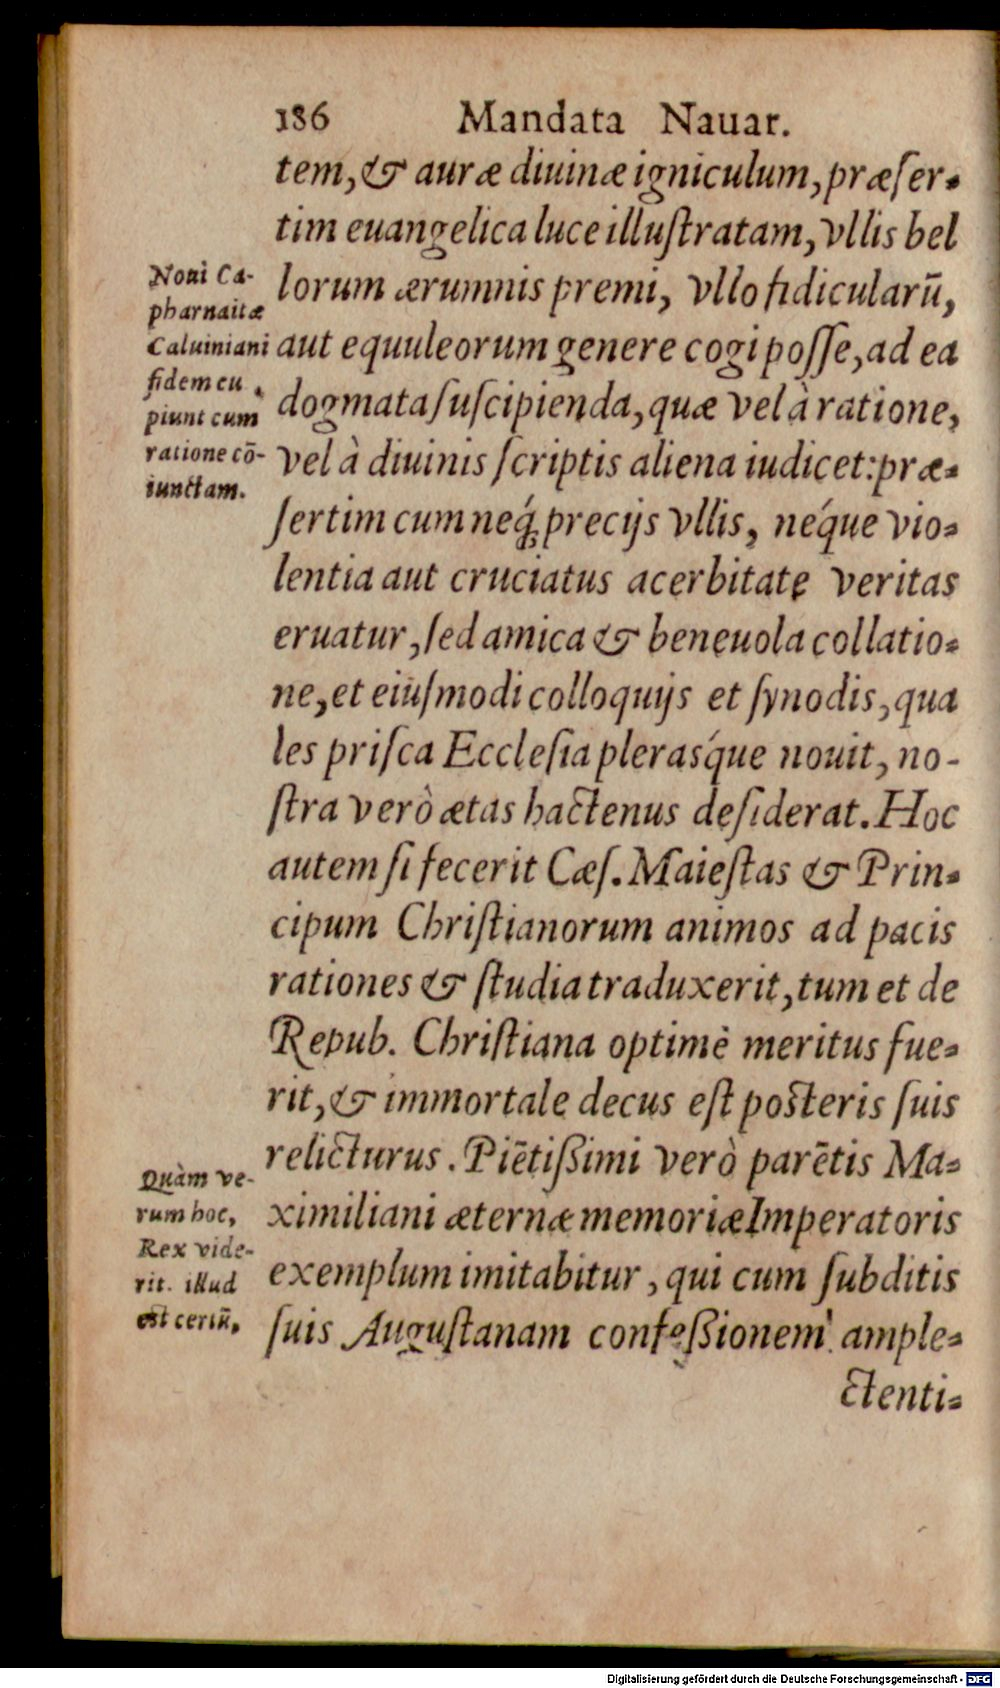 186 Mandata Nauar.
tem, & auræ diuinæ igniculum, præſer-
tim euangelica luce illuſtratam, vllis bel
lorum ærumnis premi, vllo fidicularū,
aut equuleorum genere cogi poſſe, ad ea
dogmata ſuſcipienda, quæ vel à ratione,
vel à diuinis ſcriptis aliena iudicet: præ-
ſertim cum neq́; precijs vllis, néque vio-
lentia aut cruciatus acerbitate veritas
eruatur, ſed amica & beneuola collatio-
ne, et eiuſmodi colloquijs et ſynodis, qua
les priſca Eccleſia plerasq́ue nouit, no-
ſtra verò ætas hactenus deſiderat. Hoc
autem ſi fecerit Cæſ. Maieſtas & Prin-
cipum Chriſtianorum animos ad pacis
rationes & ſtudia traduxerit, tum et de
Repub. Chriſtiana optimè meritus fue-
rit, & immortale decus eſt poſteris ſuis
relicturus. Piētiſſimi verò parētis Ma-
ximiliani æternæ memoriæ Imperatoris
exemplum imitabitur, qui cum ſubditis
ſuis Auguſtanam confeſſionem ample-
ctenti-
Noui Ca-
pharnaitæ
Caluiniani
fidem cu
piunt cum
ratione cō-
iunctam.
Quàm ve-
rum hoc,
Rex vide-
rit. illud
eſt certū,
Digitalisierung gefördert durch die Deutsche Forschungsgemeinschaft - DFG